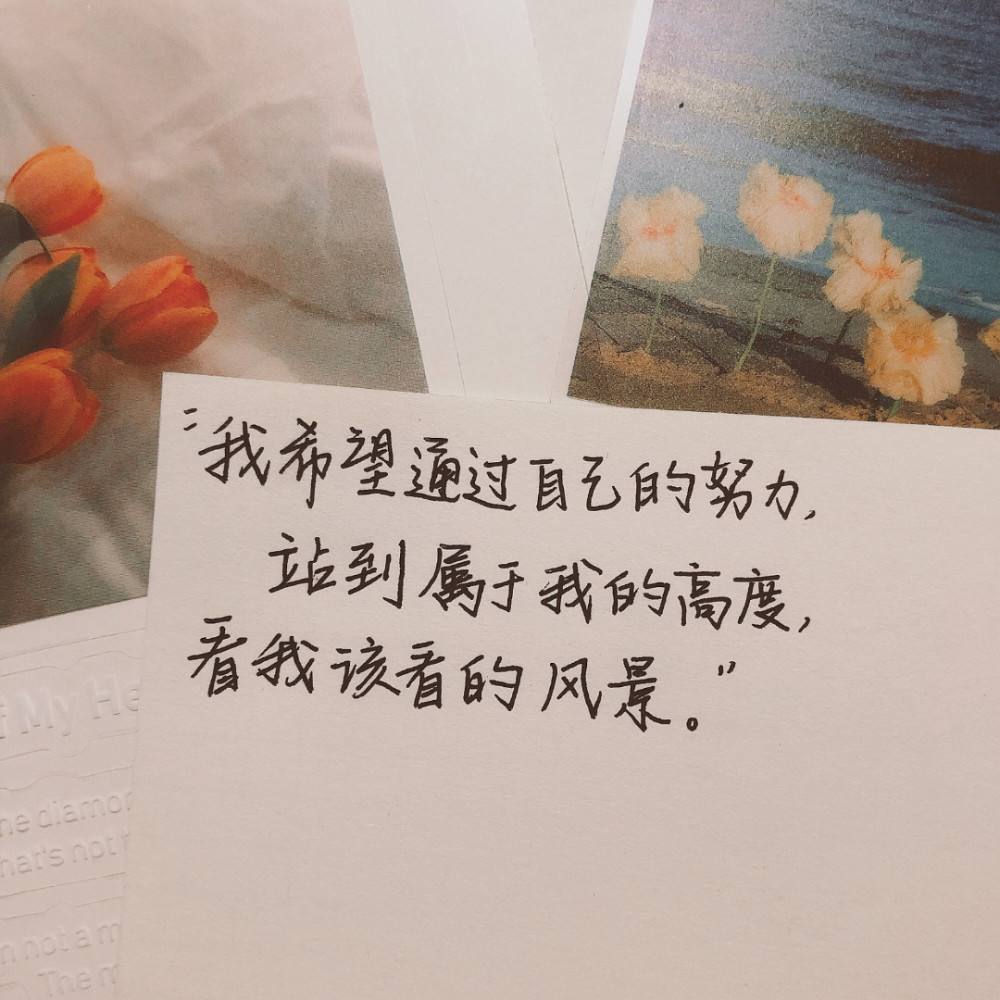 “我希望通过自己的努力，
站到属于我的高度，
看我该看的风景。”
f My He
he diamon
hat's not
n not a m
The m